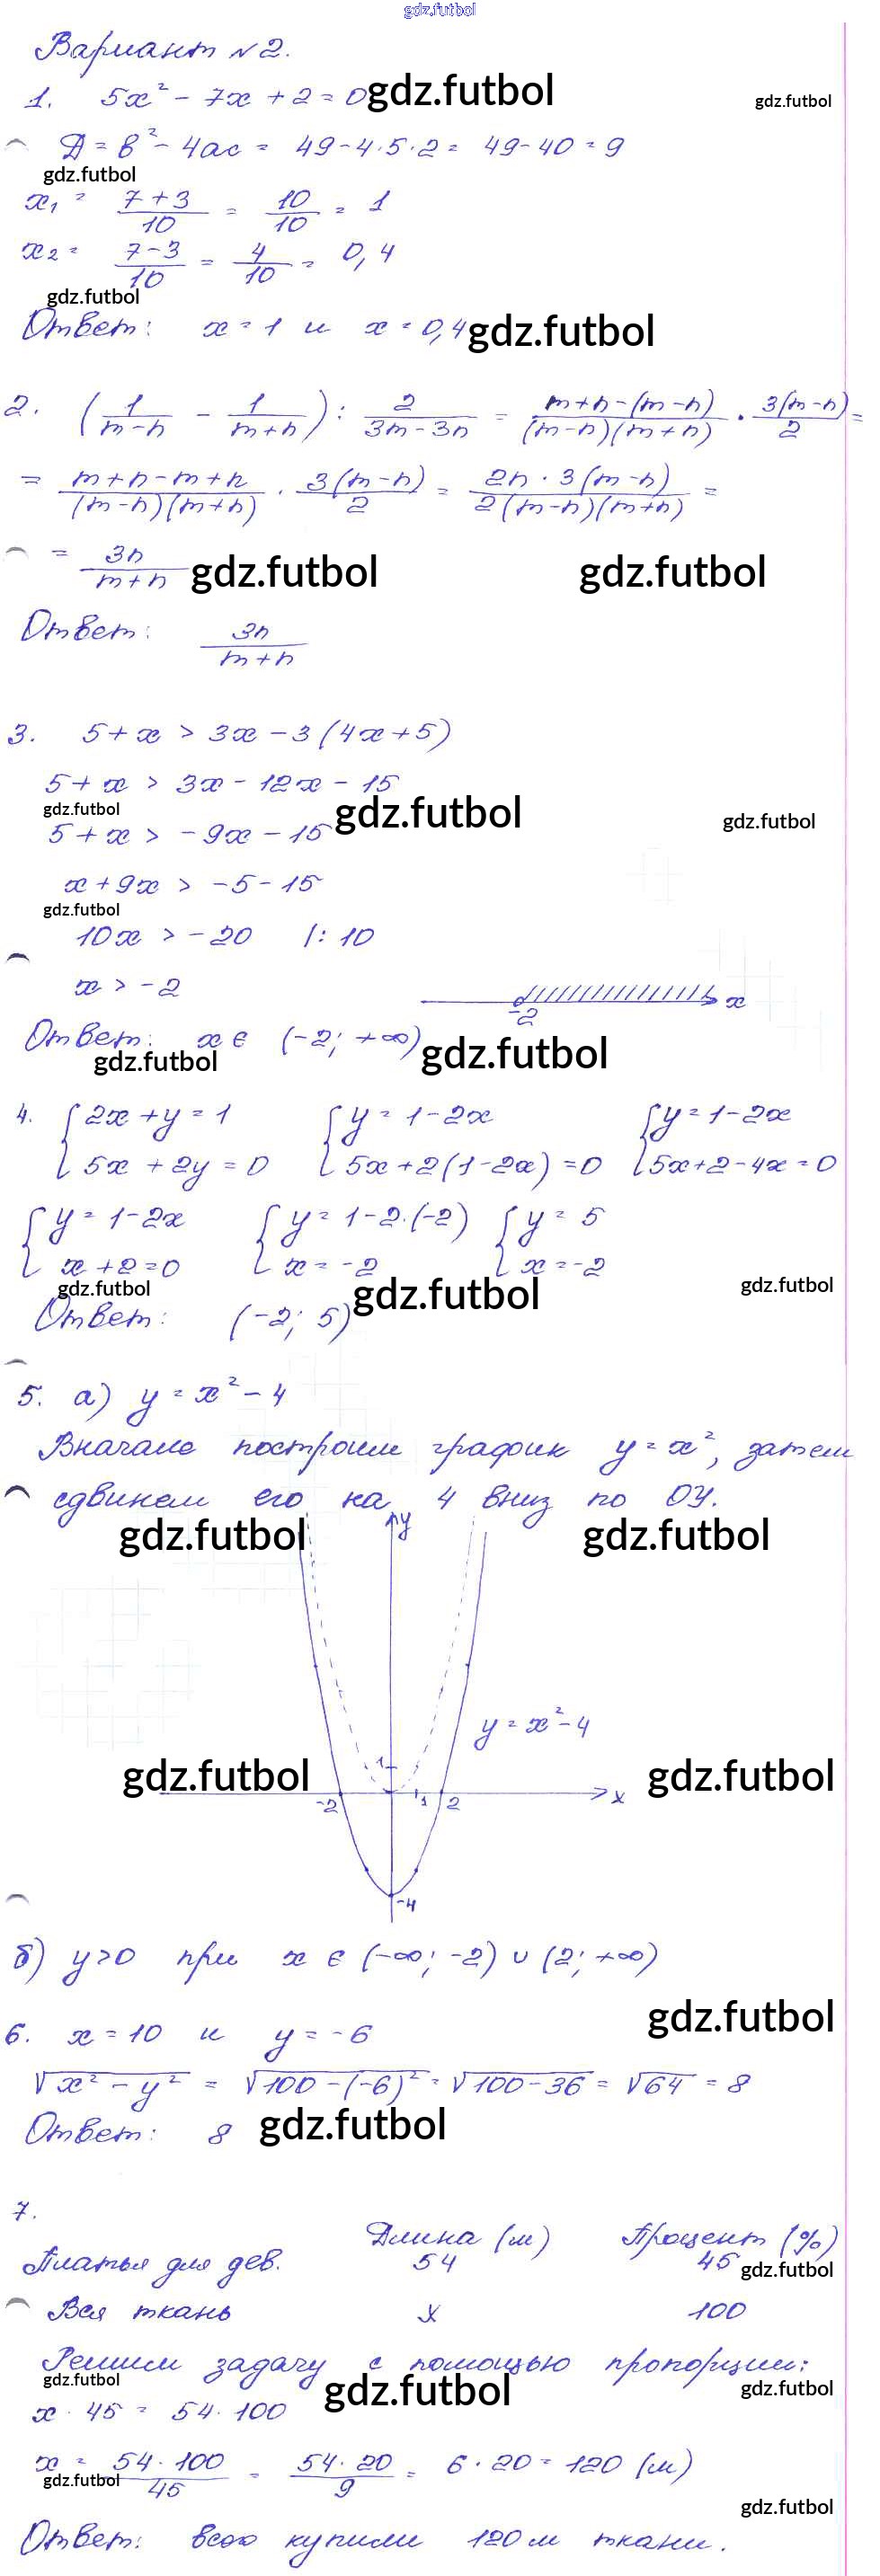 gdz.futbol
Вариант №2.
1. 5x² - 7x + 2 = 0 gdz.futbol gdz.futbol
Д = b² - 4ac = 49 - 4·5·2 = 49 - 40 = 9
gdz.futbol
x₁ = (7+3)/10 = 10/10 = 1
x₂ = (7-3)/10 = 4/10 = 0,4
gdz.futbol
Ответ: x = 1 и x = 0,4 gdz.futbol
2. (1/(m-n) - 1/(m+n)) : 2/(3m-3n) = (m+n-(m-n))/((m-n)(m+n)) · 3(m-n)/2 =
= (m+n-m+n)/((m-n)(m+n)) · 3(m-n)/2 = (2n·3(m-n))/(2(m-n)(m+n)) =
= 3n/(m+n) gdz.futbol gdz.futbol
Ответ: 3n/(m+n)
3. 5+x > 3x-3(4x+5)
5+x > 3x-12x-15
gdz.futbol gdz.futbol gdz.futbol
5+x > -9x-15
x+9x > -5-15
gdz.futbol
10x > -20 |: 10
x > -2
-2 x
Ответ: x ∈ (-2; +∞) gdz.futbol
gdz.futbol
4. {2x+y=1 {y=1-2x {y=1-2x
{5x+2y=0 {5x+2(1-2x)=0 {5x+2-4x=0
{y=1-2x {y=1-2·(-2) {y=5
{x+2=0 {x=-2 {x=-2
gdz.futbol gdz.futbol gdz.futbol
Ответ: (-2; 5)
5. а) y = x² - 4
Вначале построим график y = x², затем
сдвинем его на 4 вниз по ОУ.
gdz.futbol gdz.futbol
y
y = x² - 4
gdz.futbol gdz.futbol
1
-2 1 2 x
-4
б) y>0 при x ∈ (-∞; -2) ∪ (2; +∞)
gdz.futbol
6. x = 10 и y = -6
√(x² - y²) = √(100-(-6)²) = √(100-36) = √64 = 8
Ответ: 8 gdz.futbol
7.
Длина (м) Процент (%)
Платья для дев. 54 45 gdz.futbol
Вся ткань x 100
Решим задачу с помощью пропорции:
gdz.futbol gdz.futbol gdz.futbol
x · 45 = 54 · 100
x = (54·100)/45 = (54·20)/9 = 6·20 = 120 (м)
gdz.futbol
gdz.futbol
Ответ: всего купили 120 м ткани.